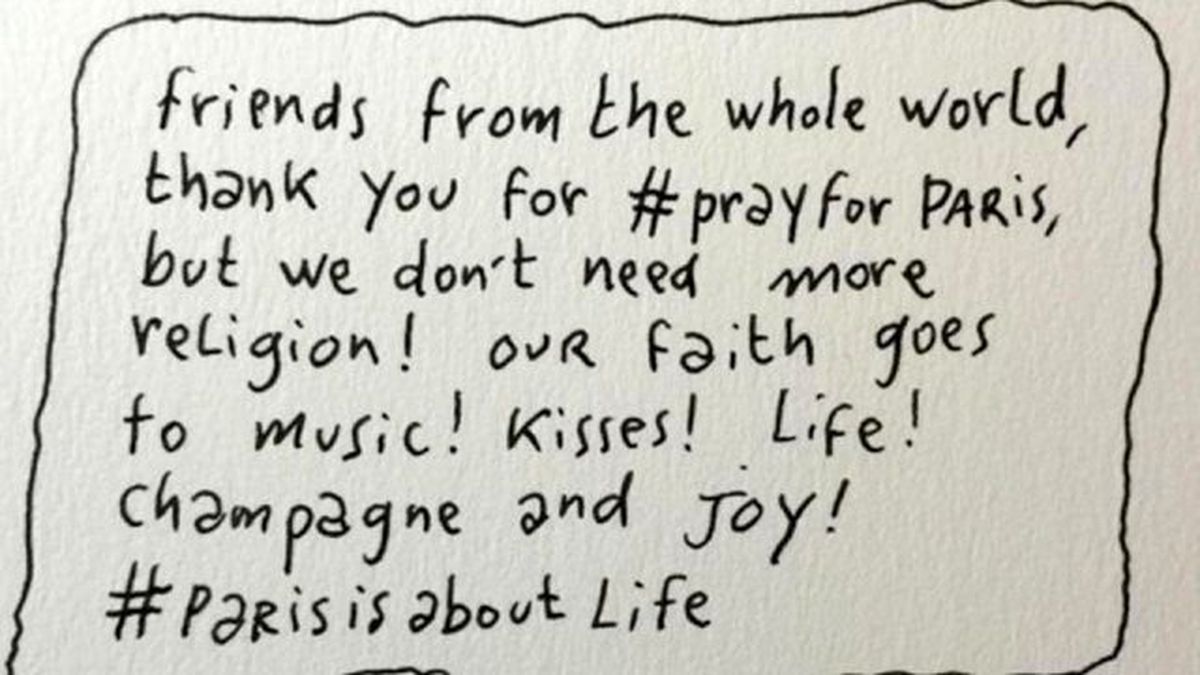 friends from the whole world,
thank you for #prayforPARis,
but we don't need more
religion! ouR faith goes
to music! Kisses! Life!
Champagne and Joy!
#PaRisisaboutLife